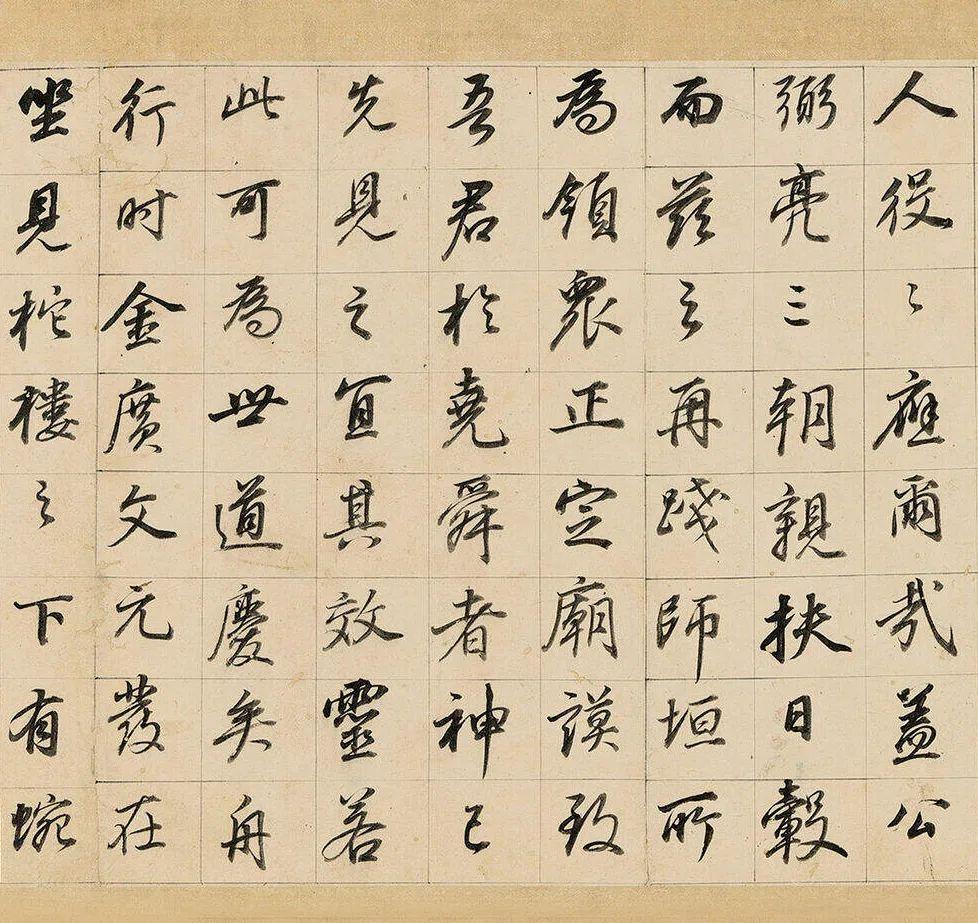 人役〻應爾哉蓋公
弼亮三朝親扶日轂
而茲之再踐師垣所
為領眾正定廟謨致
吾君於堯舜者神已
先見之宜其效靈若
此可為世道慶矣舟
行时金廣文元發在
坐見柁樓之下有蜿